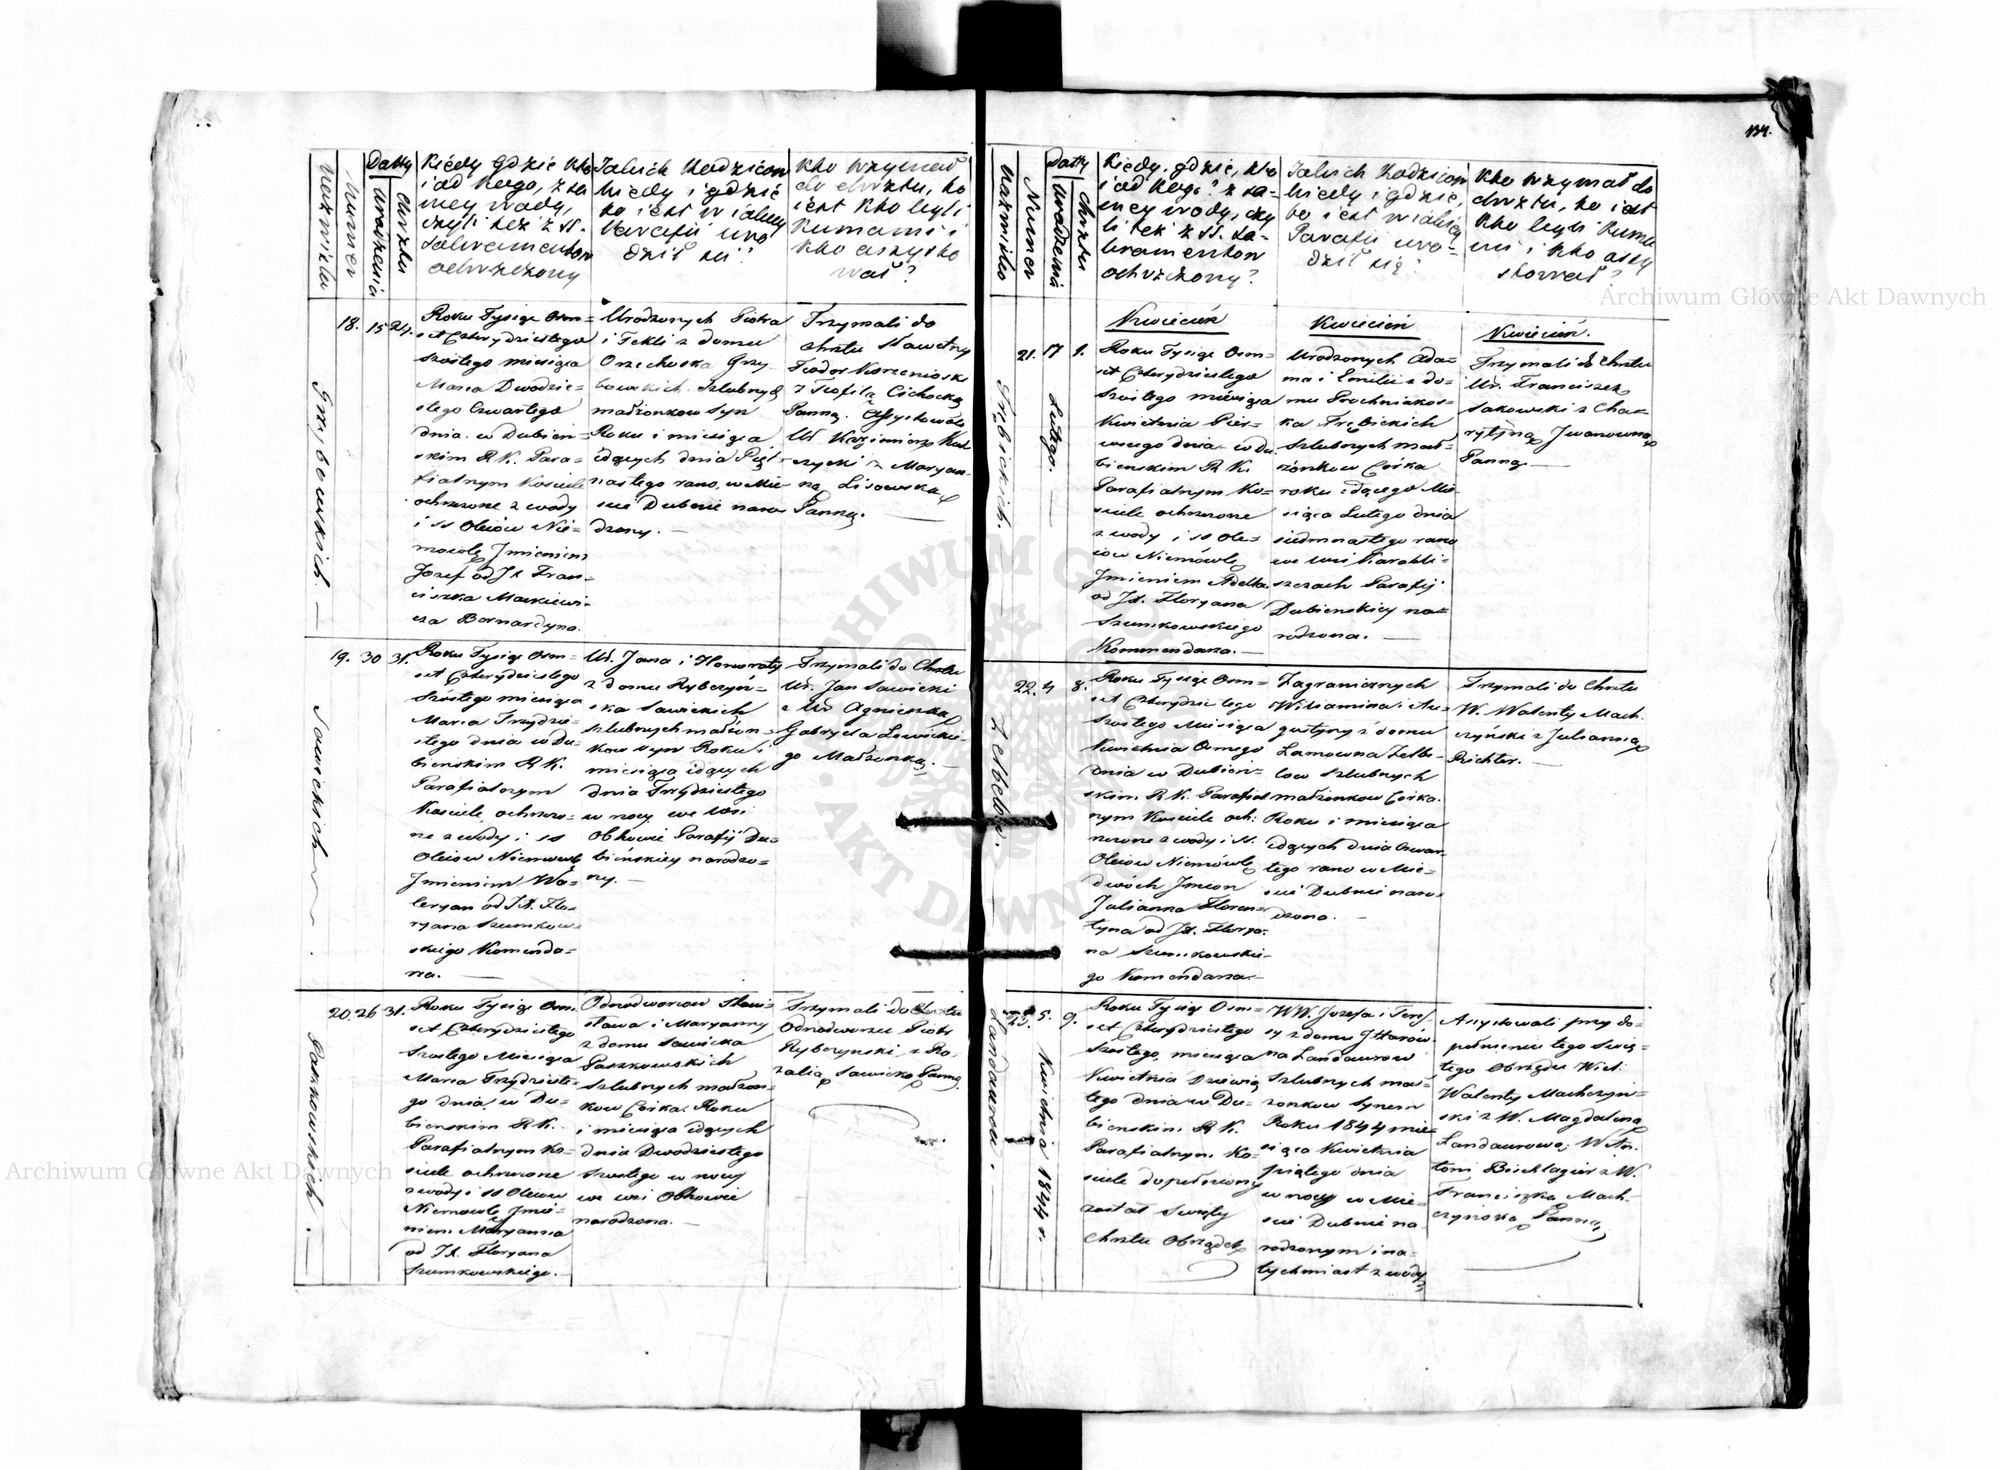 134.
Nazwisko
Numer
Datty
Urodzenia
Chrztu
Kiedy Gdzie kto
i od kogo, z sa
mey wody,
czyli też z SS.
Sakramentow
ochrzczony
Jakich Rodzicow
kiedy i gdzie
bo iest w iakiey
Parafii uro
dził się?
Kto trzymał
do chrztu, bo
iest kto byli
Kumami i
kto assysto
wał?
Grzybowskich.
18. 15 24.
Roku Tysiąc Osm=
set Czterydziestego
szostego miesiąca
Marca Dwodzie=
stego Czwartego
dnia w Dubien=
skim R. K. Para=
fialnym Kosciele
ochrzczone z wody
i SS Oleiow Nie=
mowlę Jmieniem
Jozef od JX. Fran=
ciszka Mackiewi=
cza Bernardyna.
Urodzonych Piotra
i Tekli z domu
Orzechoska Grzy=
bowskich szlubnych
małżonkow Syn
Roku i miesiąca
idących dnia Pięt=
nastego rano, w Mie
scie Dubnie naro=
dzony. —
Trzymali do
chrztu Sławetny
Teodor Korzenioski
z Teofilą Cichocką
Panną. Assystowali
Ur Kazimierz Kul
czycki z Maryan
ną Lisowską
Panną. —
Sawickich.
19. 30 31.
Roku Tysiąc Osm=
set Czterydziestego
szostego miesiąca
Marca Trzydzie=
stego dnia w Du=
bienskim R K.
Parafialnym
Kosciele ochrzczo=
ne z wody i SS
Oleiow Niemowlę
Jmieniem Wa=
leryan od JX. Flo=
ryana Szumkow=
skiego Komenda=
rza. —
Ur. Jana i Honoraty
z domu Ryberyń=
ska Sawickich
szlubnych małżon=
kow syn Roku i
miesiąca idących
dnia Trzydziestego
w nocy we wsi
Obhowie Parafij Du=
bieńskiey narodzo=
ny. —
Trzymali do Chrztu
Ur. Jan Sawicki
z Ur Agnieszką
Gabryela Lewickie=
go Małżonką. —
Paszkowskich.
20. 26 31.
Roku Tysiąc Osm=
set Czterydziestego
szostego Miesiąca
Marca Trzydzieste=
go dnia w Du=
bienskim R. K.
Parafialnym Ko=
sciele ochrzczone
z wody i SS Oleiow
Niemowlę Jmie=
niem Maryanna
od JX. Floryana
Szumkowskiego. —
Odnodworcow Stani=
sława i Maryanny
z domu Sawicka
Paszkowskich
szlubnych małżon=
kow Corka Roku
i miesiąca idących
dnia Dwodziestego
szostego w nocy
we wsi Obhowie
narodzona. —
Trzymali do Chrztu
Odnodworzec Piotr
Ryberynski z Ro=
zalią Sawicką Panną
Nazwisko
Numer
Datty
Urodzenia
Chrztu
Kiedy, gdzie, kto
i od kogo? z sa=
mey wody, czy
li też z SS. Sa=
kramentow
ochrzczony?
Jakich Rodzicow
kiedy i gdzie,
bo iest w iakiey
Parafii uro=
dził się?
Kto trzymał do
chrztu, bo iest
kto byli kuma
mi i kto assy
stował?
Trębickich.
21. 17 1.
Lutego.
Kwiecień
Roku Tysiąc Osm=
set Czterydziestego
szostego miesiąca
Kwietnia Pier=
wszego dnia w Du
bienskim R K.
Parafialnym Ko=
sciele ochrzczone
z wody i SS Ole=
iow Niemówlę
Jmieniem Adella
od JX. Floryana
Szumkowskiego
Kommendarza. —
Kwiecień
Urodzonych Ada=
ma i Emilii z do=
mu Prochniakos=
ka Trębickich
szlubnych mał=
żonkow Corka
roku idącego Mie=
siąca Lutego dnia
siedmnastego rano
we wsi Karabli=
szczach Parafij
Dubienskiey na=
rodzona. —
Kwiecień.
Trzymali do Chrztu
Ur. Franciszek
Sakowski z Cha=
rytyną Jwanowną
Panną. —
Zelbelow.
22. 4 8.
Roku Tysiąc Osm=
set Czterydziestego
szostego Miesiąca
Kwietnia Osmego
dnia w Dubien=
skim R. K. Parafial
nym Kosciele och:
rzczone z wody i SS.
Oleiow Niemówlę
dwóch Jmion
Julianna Floren=
tyna od JX. Florya=
na Szumkowskie=
go Komendarza. —
Zagranicznych
Wiliamina i Au=
gustyny z domu
Lamowna Zelbe=
low szlubnych
małżonkow Corka
Roku i miesiąca
idących dnia Czwar
tego rano w Mie=
scie Dubnie naro=
dzona. —
Trzymali do Chrztu
W. Walenty Mach
czyński z Julianną
Richter. —
Landaurow.
23. 5. 9.
Kwietnia 1844 r.
Roku Tysiąc Osm=
set Czterydziestego
szostego miesiąca
Kwietnia Dziewią
tego dnia w Du=
bienskim R. K.
Parafialnym Ko=
sciele dopełniony
został Swięty
Chrztu Obrządek
WW. Jozefa i Teres
sy z domu
na Landaurow
szlubnych mał=
żonkow Synem
Roku 1844 mie=
siąca Kwietnia
piątego dnia
w nocy w Mie=
scie Dubnie na
rodzonym i na=
tychmiast z wody
Assystowali przy do=
pełnieniu tego Swię=
tego Obrządu Wiel.
Walenty Machczyn=
ski z W. Magdaleną
Landaurową; W An
toni z W.
Franciszką Mach=
czynską Panną.